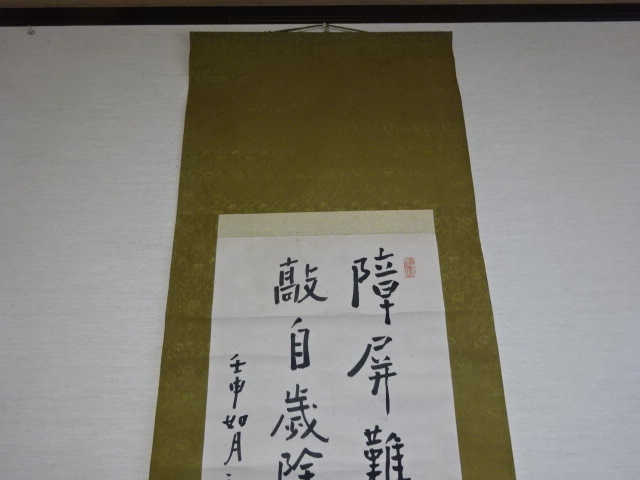 障屏難
敲自歲除
壬申如月